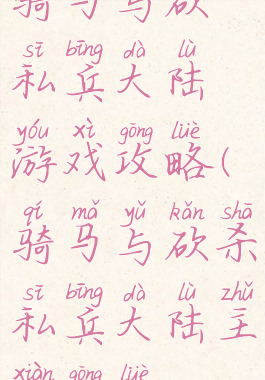 骑马与砍
sī bīng dà lù
私兵大陆
yóu xì gōng lüè
游戏攻略(
qí mǎ yǔ kǎn shā
骑马与砍杀
sī bīng dà lù zhǔ
私兵大陆主
xiàn gōng lüè